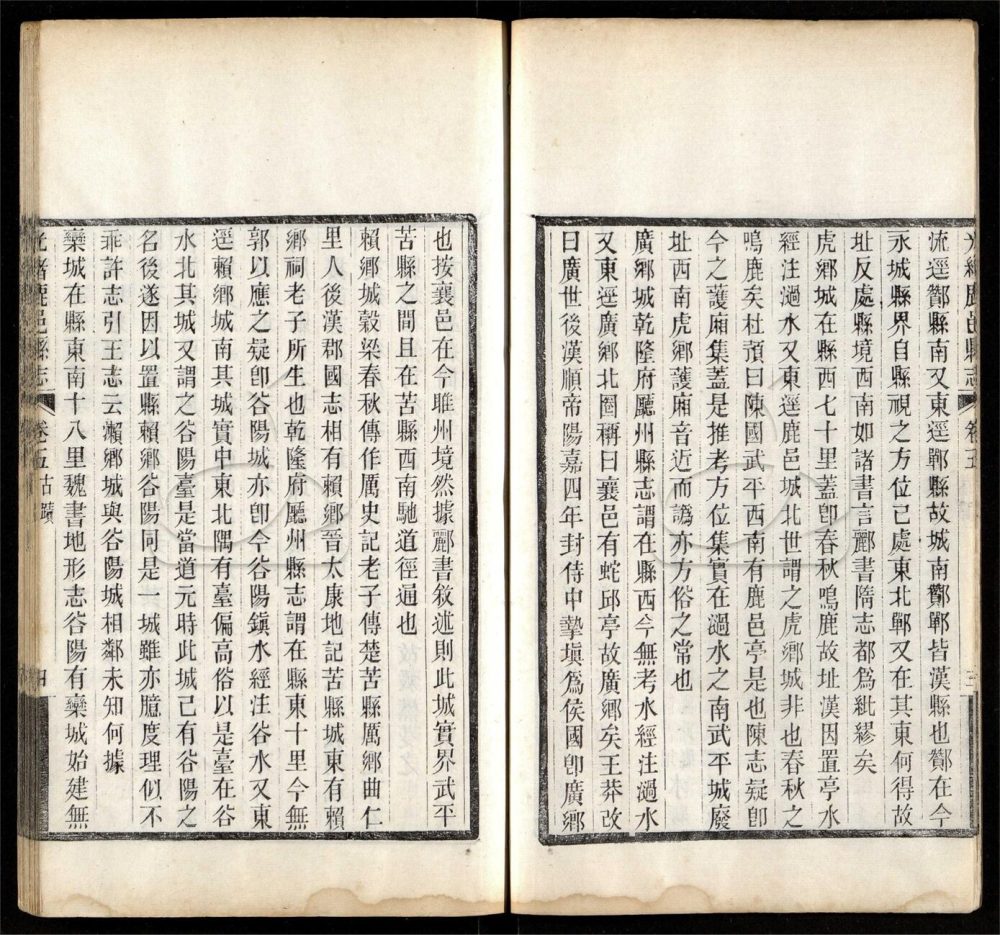 光緒鹿邑縣志 卷五 三
流逕酇縣南又東逕鄲縣故城南酇鄲皆漢縣也酇在今
永城縣界自縣視之方位已處東北鄲又在其東何得故
址反處縣境西南如諸書言酈書隋志都爲紕繆矣
虎鄉城在縣西七十里蓋卽春秋鳴鹿故址漢因置亭水
經注濄水又東逕鹿邑城北世謂之虎鄉城非也春秋之
鳴鹿矣杜預曰陳國武平西南有鹿邑亭是也陳志疑卽
今之護廂集蓋是推考方位集實在濄水之南武平城廢
址西南虎鄉護廂音近而譌亦方俗之常也
廣鄉城乾隆府廳州縣志謂在縣西今無考水經注濄水
又東逕廣鄉北圈稱曰襄邑有蛇邱亭故廣鄉矣王莽改
曰廣世後漢順帝陽嘉四年封侍中摯塡爲侯國卽廣鄉
也按襄邑在今睢州境然據酈書敘述則此城實界武平
苦縣之間且在苦縣西南馳道徑通也
賴鄉城穀梁春秋傳作厲史記老子傳楚苦縣厲鄉曲仁
里人後漢郡國志相有賴鄉晉太康地記苦縣城東有賴
鄉祠老子所生也乾隆府廳州縣志謂在縣東十里今無
郭以應之疑卽谷陽城亦卽今谷陽鎭水經注谷水又東
逕賴鄉城南其城實中東北隅有臺偏高俗以是臺在谷
水北其城又謂之谷陽臺是當道元時此城已有谷陽之
名後遂因以置縣賴鄉谷陽同是一城雖亦臆度理似不
乖許志引王志云瀨鄉城與谷陽城相鄰未知何據
欒城在縣東南十八里魏書地形志谷陽有欒城始建無
光緒鹿邑縣志 卷五 古蹟 四